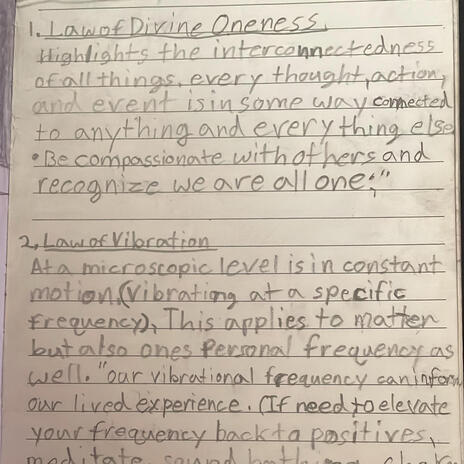 1. Law of Divine Oneness
Highlights the interconnectedness
of all things, every thought, action,
and event is in some way connected
to anything and everything else
• Be compassionate with others and
recognize we are all one;"
2, Law of Vibration
At a microscopic level is in constant
motion, (vibrating at a specific
frequency), This applies to matter
but also ones Personal frequency as
well. "our vibrational frequency can inform
our lived experience. (If need to elevate
your frequency back to positives,
meditate, sound bath,